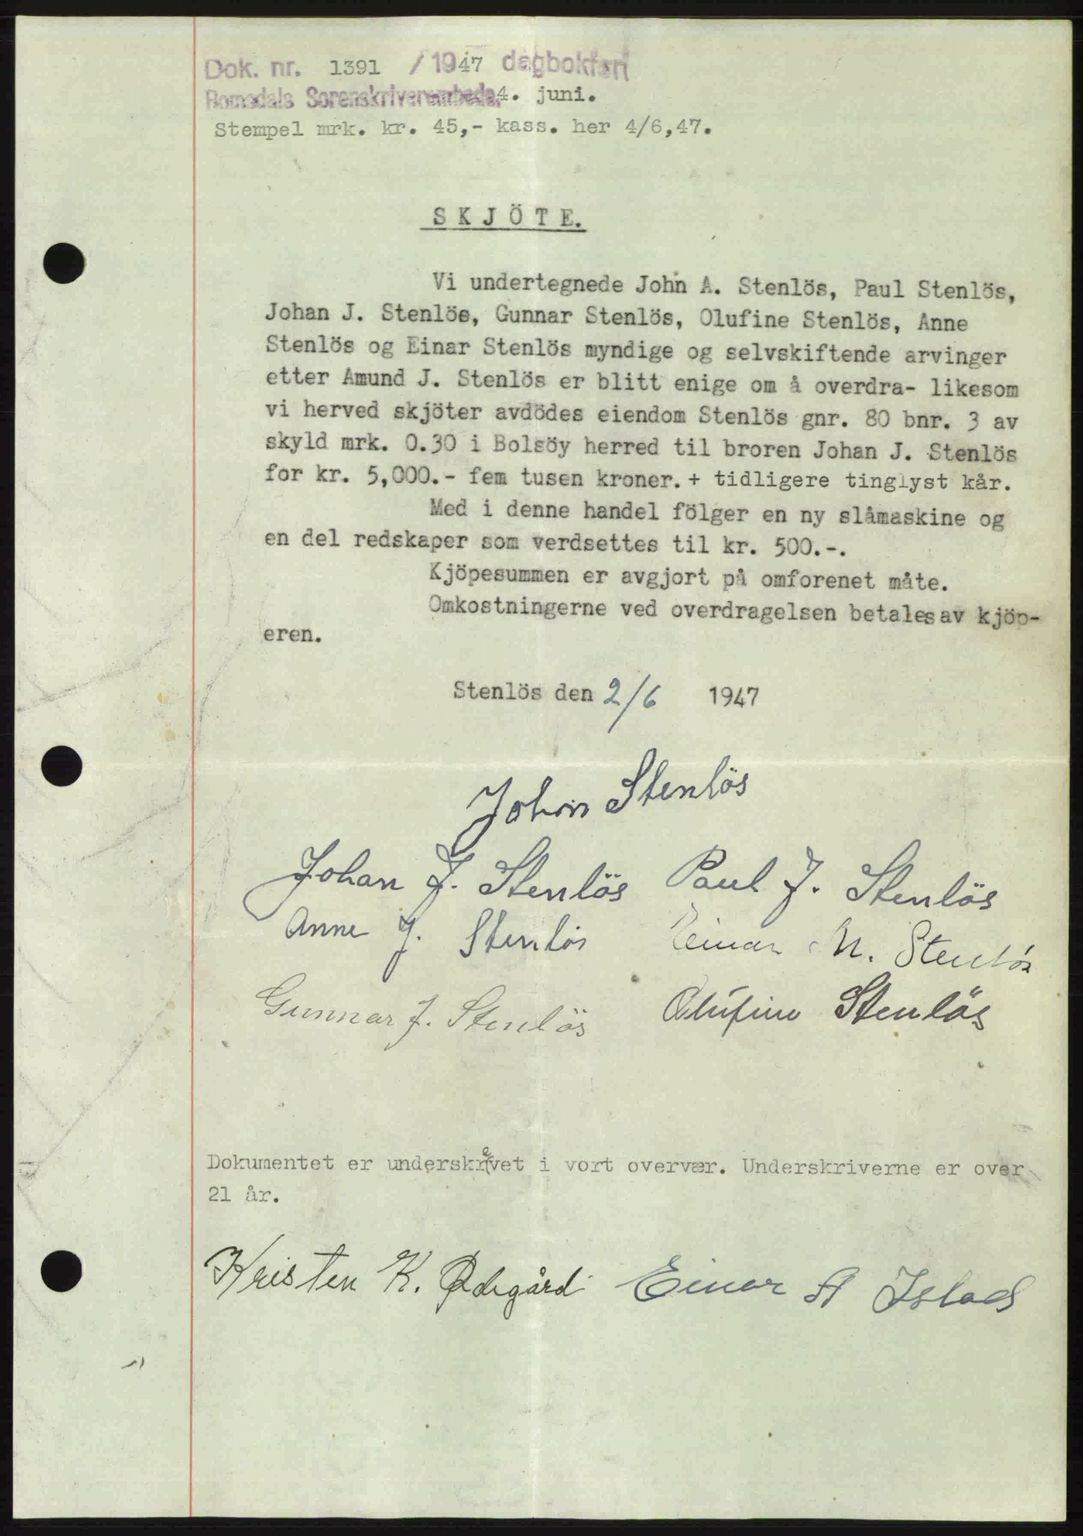 Dok. nr. 1391 / 1947 dagbokført
Romsdals Sorenskriverembede, 4. juni.
Stempel mrk. kr. 45,- kass. her 4/6,47.
SKJÖTE.
Vi undertegnede John A. Stenlös, Paul Stenlös,
Johan J. Stenlös, Gunnar Stenlös, Olufine Stenlös, Anne
Stenlös og Einar Stenlös myndige og selvskiftende arvinger
etter Amund J. Stenlös er blitt enige om å overdra- likesom
vi herved skjöter avdödes eiendom Stenlös gnr. 80 bnr. 3 av
skyld mrk. 0.30 i Bolsöy herred til broren Johan J. Stenlös
for kr. 5,000.- fem tusen kroner. + tidligere tinglyst kår.
Med i denne handel fölger en ny slåmaskine og
en del redskaper som verdsettes til kr. 500.-.
Kjöpesummen er avgjort på omforenet måte.
Omkostningerne ved overdragelsen betales av kjöp-
eren.
Stenlös den 2/6 1947
John Stenlös
Johan J. Stenlös Paul J. Stenlös
Anne J. Stenlös Einar M. Stenlös
Gunnar J. Stenlös Olufine Stenlös
Dokumentet er underskrevet i vort overvær. Underskriverne er over
21 år.
Kristen K. Ødegård Einar A